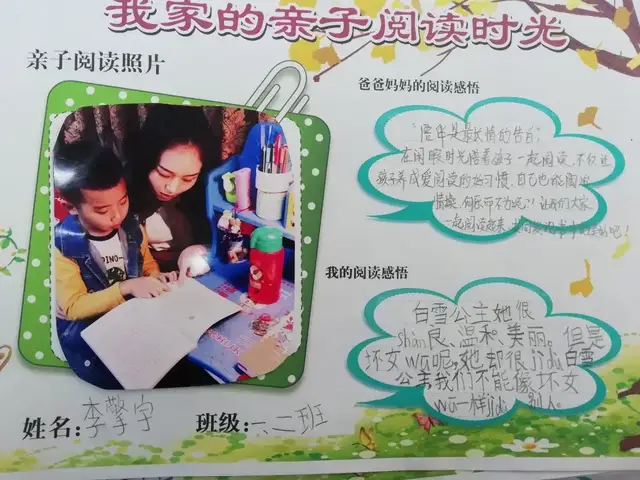 我家的亲子阅读时光
亲子阅读照片
爸爸妈妈的阅读感悟
"陪伴是最长情的告白"
在闲暇时光陪着孩子一起阅读,不仅让
孩子养成爱阅读的好习惯,自己也能陶冶
情操,何乐而不为呢?!让我们大家
一起阅读起来,
我的阅读感悟
白雪公主她很
shàn良、温和、美丽。但是
坏女wū呢,她却很jídù白雪
公主我们不能像坏女
wū一样jídù别人。
姓名:李擎宇
班级:六二班